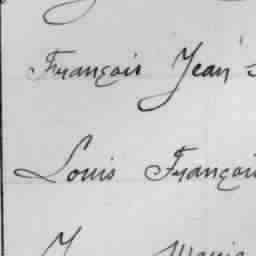 François Jean
Louis François
Maria